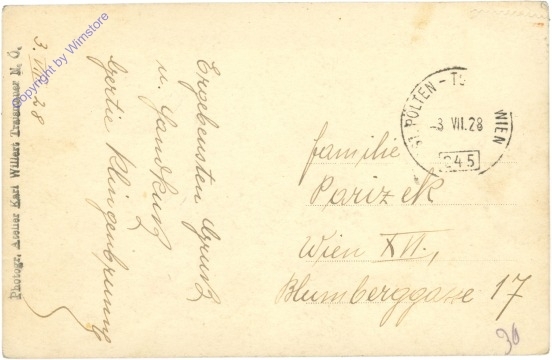 Copyright by Wimstore
3. VII. 28
Ergebensten Gruß
u. Handkuß
Gertie Klingenbrunner
Photogr. Atelier Karl Willert Traisnauer N. Ö.
ST. PÖLTEN - T WIEN
3 VII. 28
245
Familie
Parizek
Wien XII.,
Blumberggasse 17